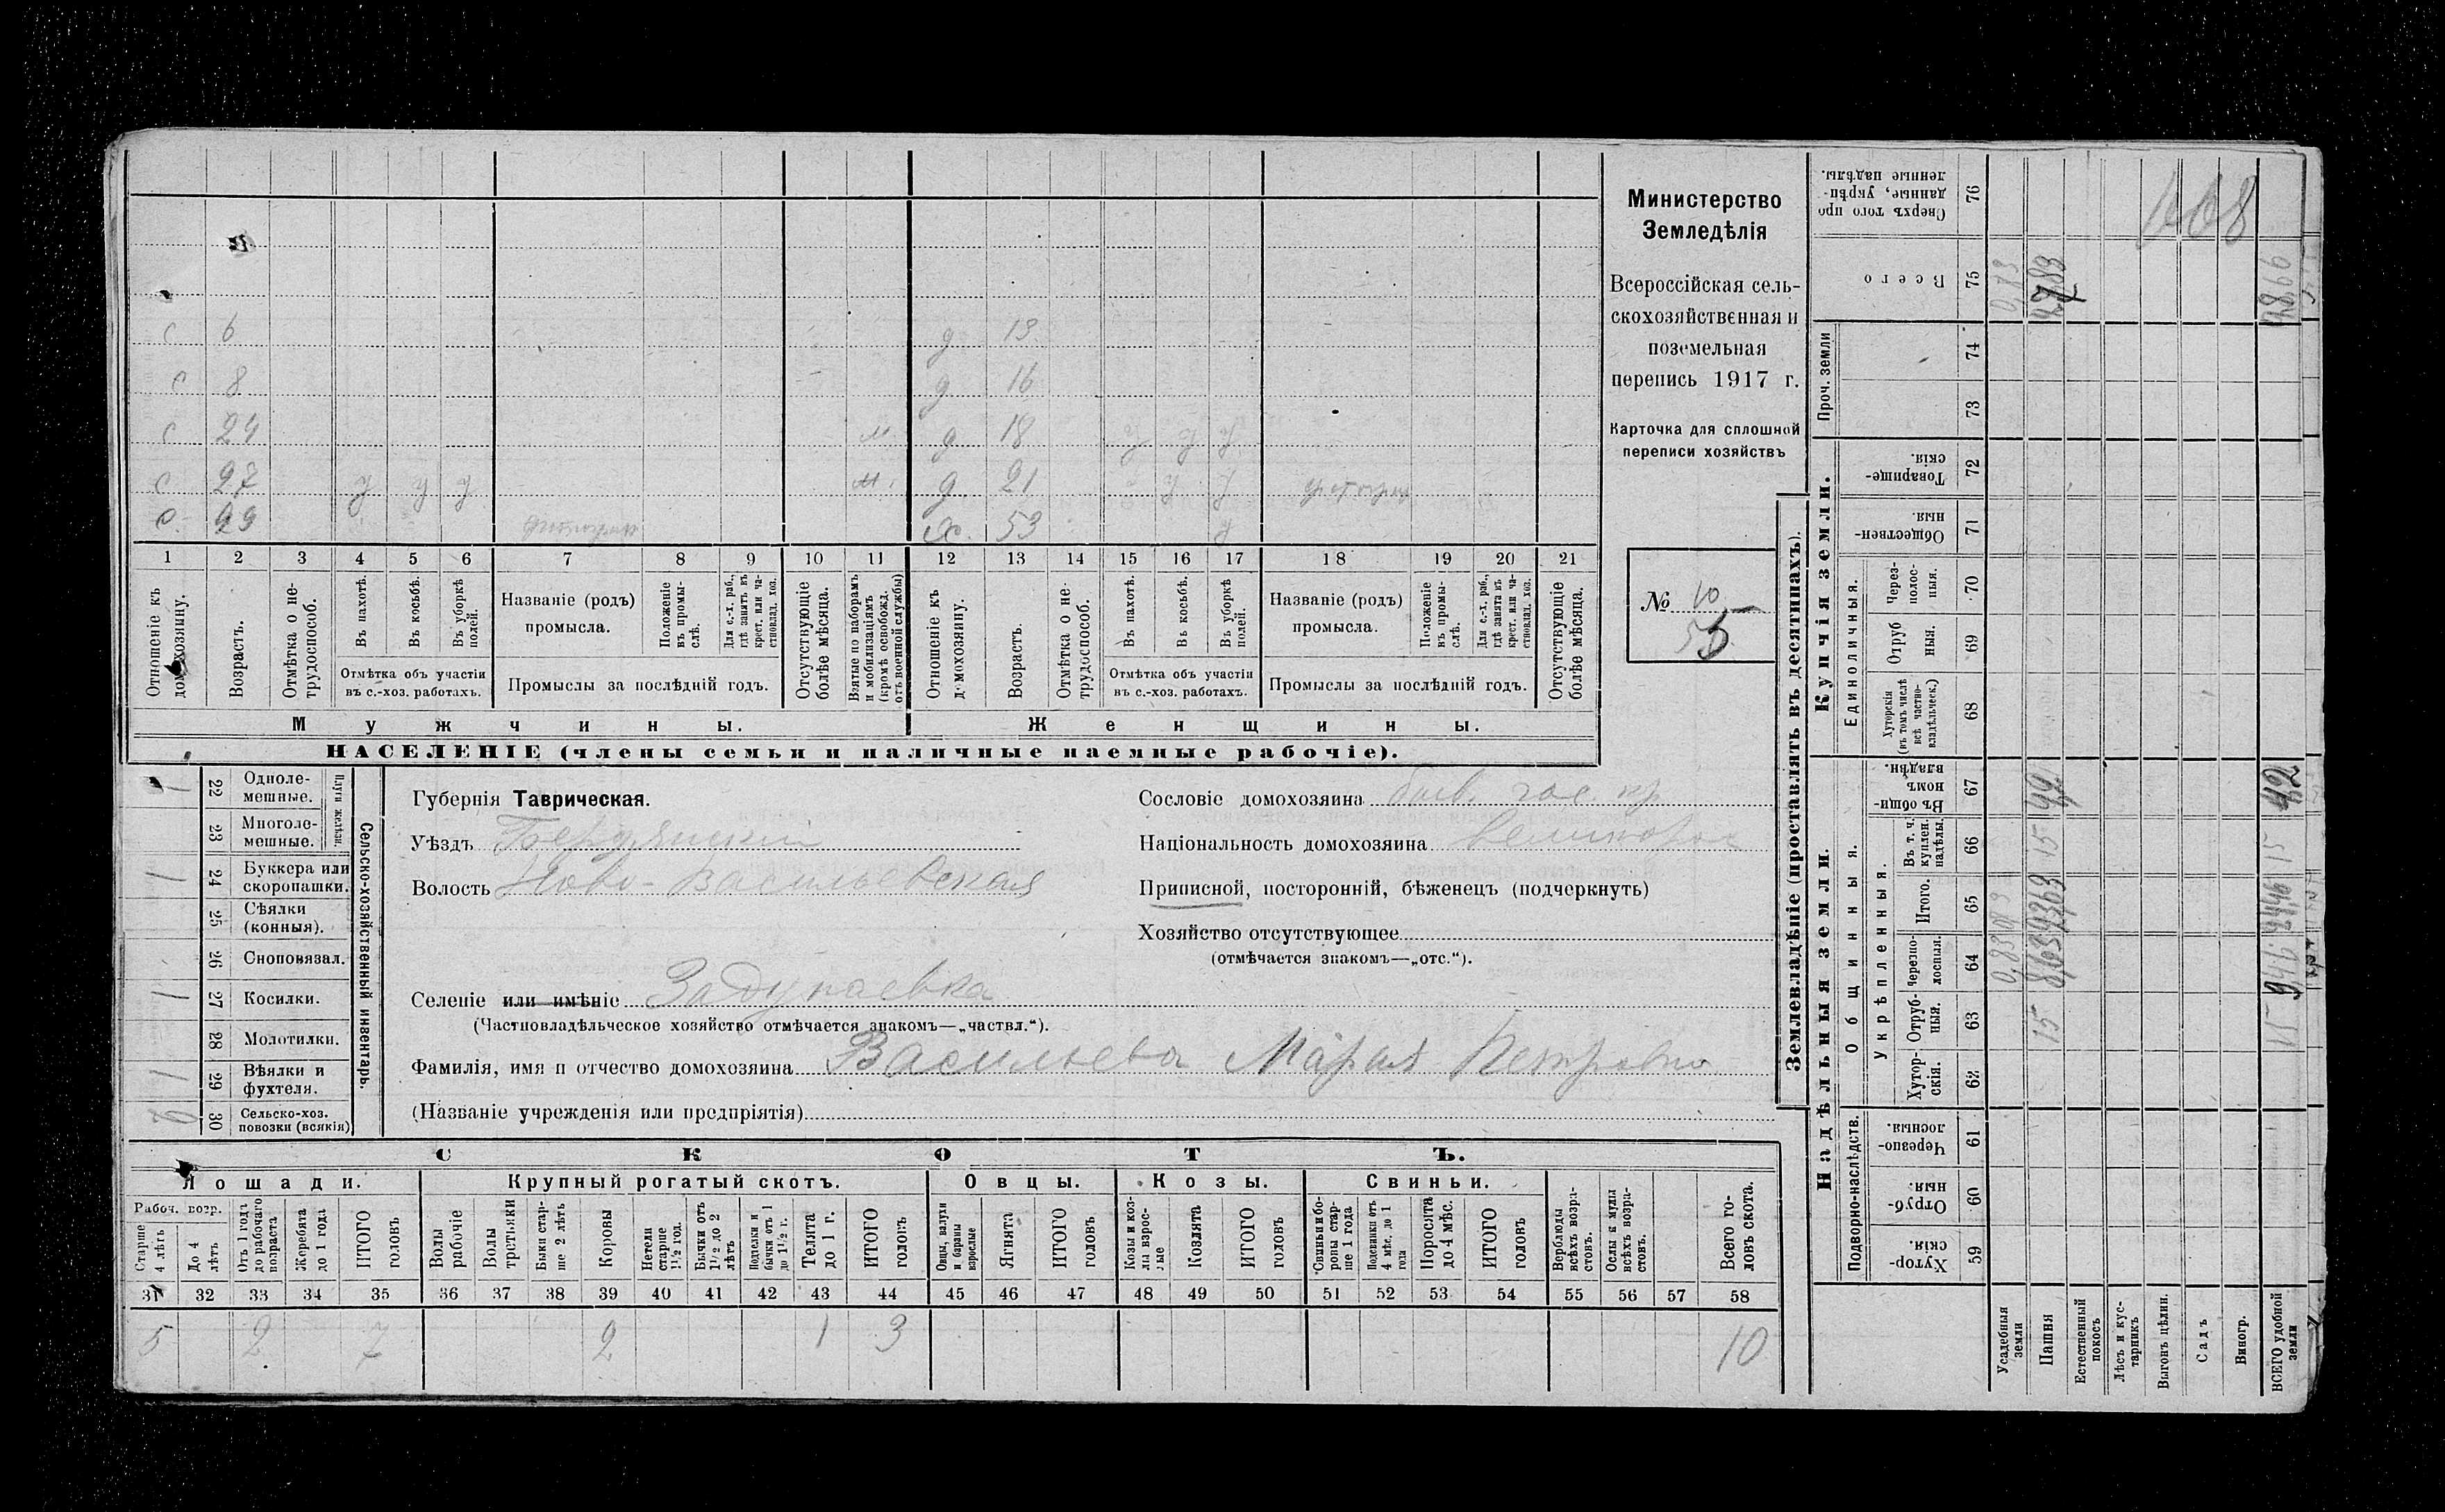 с 6 д 13
с 8 д 16
с 24 м. д 18 у у у
с 27 у у у м. д 21 у у
с. 29 х. 53 у
1 2 3 4 5 6 7 8 9 10 11 12 13 14 15 16 17 18 19 20 21
Отношеніе къ домохозяину.
Возрастъ.
Отмѣтка о не-трудоспособ.
Въ пахотѣ.
Въ косьбѣ.
Въ уборкѣ полей.
Отмѣтка объ участіи
въ с.-хоз. работахъ.
Названіе (родъ)
промысла.
Положеніе въ промы-слѣ.
Для с.-х. раб., гдѣ занятъ въ крест. или ча-стновлад. хоз.
Промыслы за послѣдній годъ.
Отсутствующіе болѣе мѣсяца.
Взятые по наборамъ и мобилизаціямъ (кромѣ освобожд. отъ военной службы)
Отношеніе къ домохозяину.
Возрастъ.
Отмѣтка о не-трудоспособ.
Въ пахотѣ.
Въ косьбѣ.
Въ уборкѣ полей.
Отмѣтка объ участіи
въ с.-хоз. работахъ.
Названіе (родъ)
промысла.
Положеніе въ промы-слѣ.
Для с.-х. раб., гдѣ занятъ въ крест. или ча-стновлад. хоз.
Промыслы за послѣдній годъ.
Отсутствующіе болѣе мѣсяца.
Мужчины. Женщины.
НАСЕЛЕНІЕ (члены семьи и наличные наемные рабочіе).
Министерство
Земледѣлія
Всероссійская сель-
скохозяйственная и
поземельная
перепись 1917 г.
Карточка для сплошной
переписи хозяйствъ
№ 10
Сельско-хозяйственный инвентарь.
Плуги желѣзн.
1 22 Одноле-мешные.
23 Многоле-мешные.
1 24 Буккера или скоропашки.
25 Сѣялки (конныя).
26 Сноповязал.
1 27 Косилки.
28 Молотилки.
1 29 Вѣялки и фухтеля.
30 Сельско-хоз. повозки (всякія)
Губернія Таврическая.
Уѣздъ Бердянскій
Волость Ново-Васильевская
Селеніе или имѣніе Задунаевка
(Частновладѣльческое хозяйство отмѣчается знакомъ—„частвл.“).
Сословіе домохозяина быв. гос. кр.
Національность домохозяина великоросс
Приписной, посторонній, бѣженецъ (подчеркнуть)
Хозяйство отсутствующее
(отмѣчается знакомъ—„отс.“).
Фамилія, имя и отчество домохозяина Васильева Марія Петровна
(Названіе учрежденія или предпріятія)
СКОТЪ.
Лошади. Крупный рогатый скотъ. Овцы. Козы. Свиньи.
Рабоч. возр.
Старше 4 лѣтъ
До 4 лѣтъ
Отъ 1 года до рабочаго возраста
Жеребята до 1 года
ИТОГО головъ
Волы рабочіе
Волы
Быки стар-ше 2 лѣтъ
Коровы
Нетели старше 1½ год.
Бычки отъ 1½ до 2 лѣтъ
бычки отъ 1 до 1½ г.
Телята до 1 г.
ИТОГО головъ
Овцы, валухи и бараны взрослые
Ягнята
ИТОГО головъ
Козы и коз-лы взрос-лые
Козлята
ИТОГО головъ
Свиньи и бо-ровы стар-ше 1 года
Подсвинки отъ 4 мѣс. до 1 года
Поросята до 4 мѣс.
ИТОГО головъ
Верблюды всѣхъ возра-стовъ.
Ослы и мулы всѣхъ возра-стовъ.
Всего го-ловъ скота.
31 32 33 34 35 36 37 38 39 40 41 42 43 44 45 46 47 48 49 50 51 52 53 54 55 56 57 58
5 2 7 2 1 3 10
Землевладѣніе (проставлять въ десятинахъ).
Надѣльныя земли. Купчія земли. Проч. земли
Подворно-наслѣдств. Общинныя. Единоличныя.
Укрѣпленныя.
Хутор-скія. 59
Отруб-ныя. 60
Черезпо-лосныя. 61
Хутор-скія. 62
Отруб-ныя. 63
Черезпо-лосныя. 64
Итого. 65
Въ т. ч. куплен. надѣлы. 66
Въ общин-номъ владѣн. 67
Хуторскія (въ томъ числѣ всѣ частно-владѣльческ.) 68
Отруб ныя. 69
Черезполос-ныя. 70
Обществен-ныя. 71
Товарище-скія. 72
73
74
Всего 75
Сверхъ того про данные, укрѣп-ленные надѣлы. 76
Усадебныя земли
Пашня 15
Естественный покосъ
Лѣсъ и кус-тарникъ
Выгонъ цѣлин.
Садъ
Виногр.
ВСЕГО удобной земли 15 9,46 24,46 15 4,2 28,66